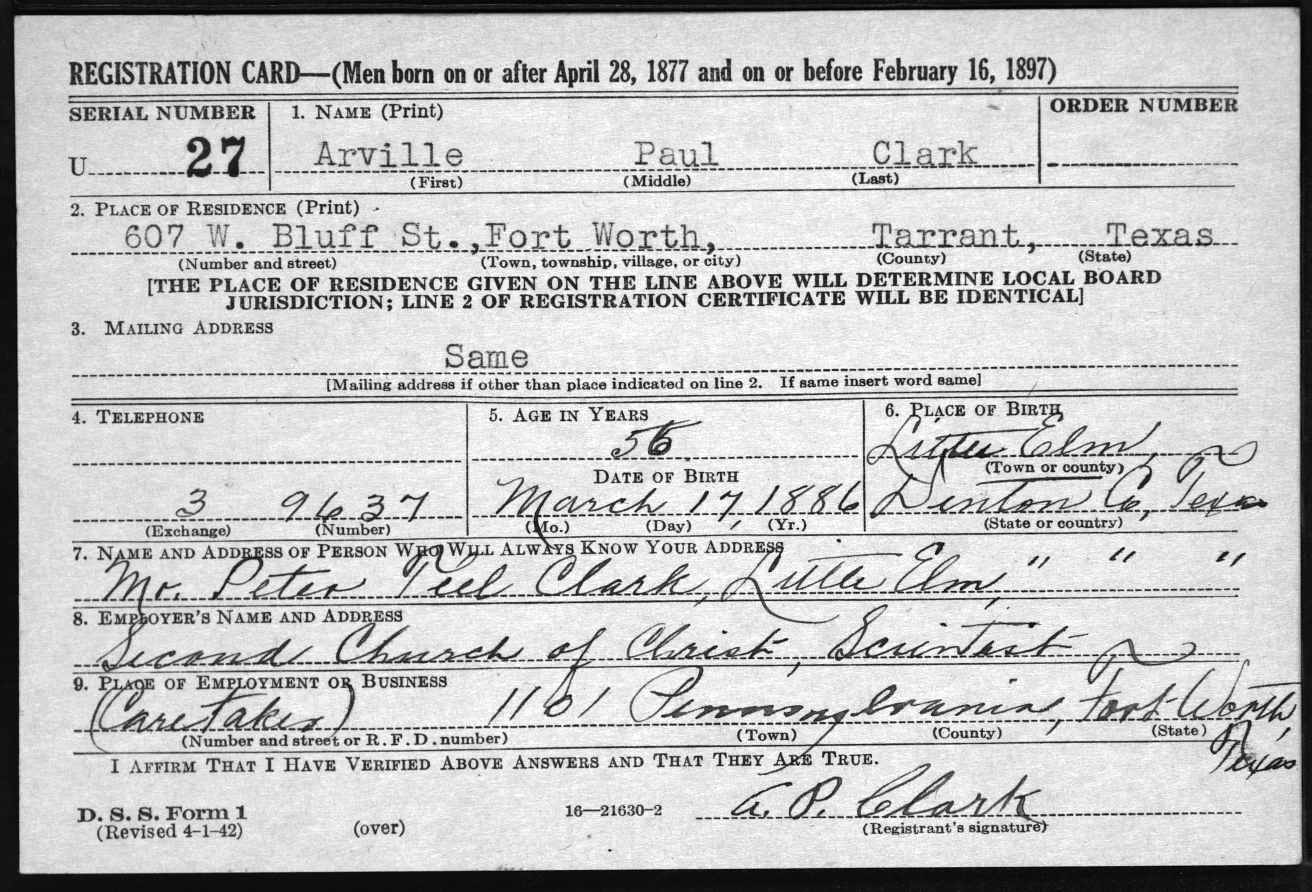 REGISTRATION CARD—(Men born on or after April 28, 1877 and on or before February 16, 1897)
SERIAL NUMBER 1. NAME (Print) ORDER NUMBER
U 27 Arville Paul Clark
(First) (Middle) (Last)
2. PLACE OF RESIDENCE (Print)
607 W. Bluff St., Fort Worth, Tarrant, Texas
(Number and street) (Town, township, village, or city) (County) (State)
[THE PLACE OF RESIDENCE GIVEN ON THE LINE ABOVE WILL DETERMINE LOCAL BOARD
JURISDICTION; LINE 2 OF REGISTRATION CERTIFICATE WILL BE IDENTICAL]
3. MAILING ADDRESS
Same
[Mailing address if other than place indicated on line 2. If same insert word same]
4. TELEPHONE 5. AGE IN YEARS 6. PLACE OF BIRTH
Little Elm,
(Town or county)
DATE OF BIRTH
3 9637 March 17, 1886 Denton Co, Texas
(Exchange) (Number) (Mo.) (Day) (Yr.) (State or country)
7. NAME AND ADDRESS OF PERSON WHO WILL ALWAYS KNOW YOUR ADDRESS
Mr. Peter Teel Clark, Little Elm, " " "
8. EMPLOYER'S NAME AND ADDRESS
Second Church of Christ, Scientist
9. PLACE OF EMPLOYMENT OR BUSINESS
(Caretaker) 1101 Pennsylvania, Fort Worth,
Texas
(Number and street or R. F. D. number) (Town) (County) (State)
I AFFIRM THAT I HAVE VERIFIED ABOVE ANSWERS AND THAT THEY ARE TRUE.
D. S. S. Form 1 16—21630-2 A. P. Clark
(Revised 4-1-42) (over) (Registrant's signature)